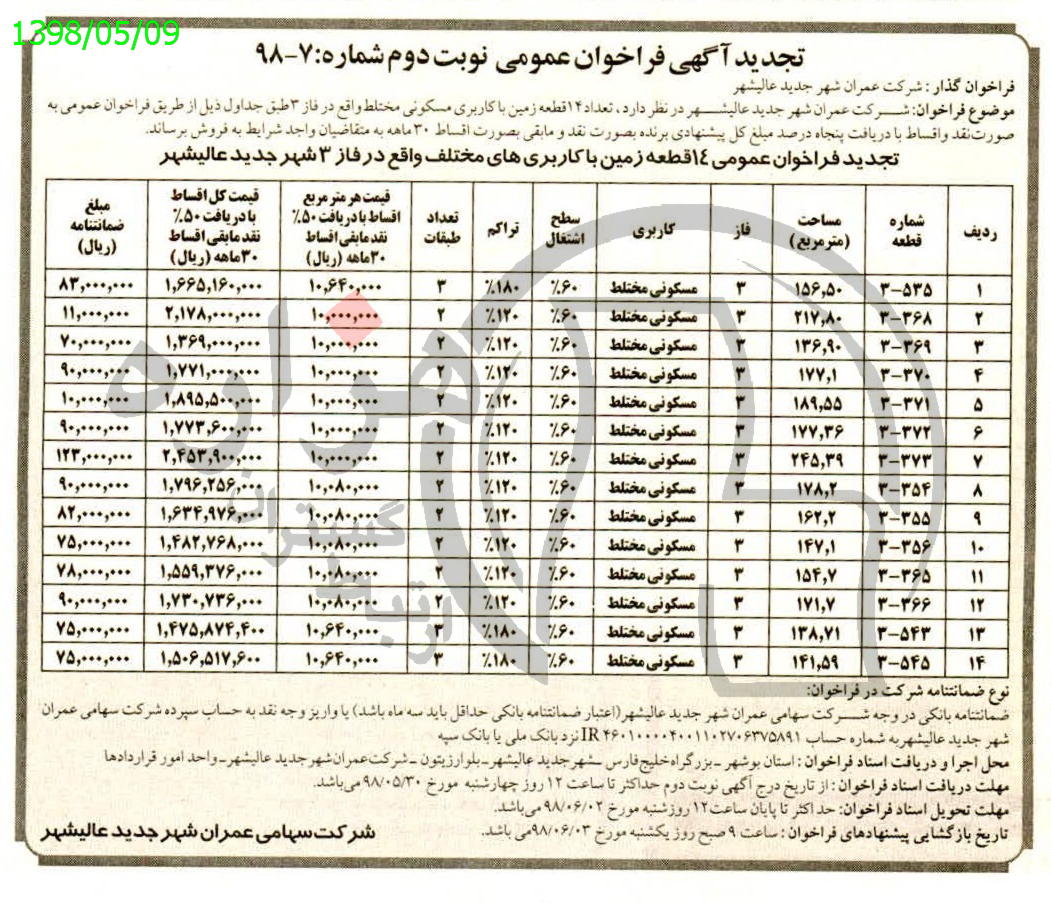 1398/05/09
تجدید آگهی فراخوان عمومی نوبت دوم شماره: ۷-۹۸
فراخوان گذار: شرکت عمران شهر جدید عالیشهر
موضوع فراخوان: شرکت عمران شهر جدید عالیشهر در نظر دارد، تعداد ۱۴ قطعه زمین با کاربری مسکونی مختلط واقع در فاز ۳ طبق جداول ذیل از طریق فراخوان عمومی به
صورت نقد و اقساط با دریافت پنجاه درصد مبلغ کل پیشنهادی برنده بصورت نقد و مابقی بصورت اقساط ۳۰ ماهه به متقاضیان واجد شرایط به فروش برساند.
تجدید فراخوان عمومی ۱۴ قطعه زمین با کاربری های مختلف واقع در فاز ۳ شهر جدید عالیشهر
ردیف | شماره قطعه | مساحت (مترمربع) | فاز | کاربری | سطح اشتغال | تراکم | تعداد طبقات | قیمت هر متر مربع اقساط با دریافت ۵۰٪ نقد مابقی اقساط ۳۰ماهه (ریال) | قیمت کل اقساط با دریافت ۵۰٪ نقد مابقی اقساط ۳۰ماهه (ریال) | مبلغ ضمانتنامه (ریال)
۱ | ۳-۵۳۵ | ۱۵۶,۵۰ | ۳ | مسکونی مختلط | ۶۰٪ | ۱۸۰٪ | ۳ | ۱۰,۶۴۰,۰۰۰ | ۱,۶۶۵,۱۶۰,۰۰۰ | ۸۳,۰۰۰,۰۰۰
۲ | ۳-۳۶۸ | ۲۱۷,۸۰ | ۳ | مسکونی مختلط | ۶۰٪ | ۱۲۰٪ | ۲ | ۱۰,۰۰۰,۰۰۰ | ۲,۱۷۸,۰۰۰,۰۰۰ | ۱۱,۰۰۰,۰۰۰
۳ | ۳-۳۶۹ | ۱۳۶,۹۰ | ۳ | مسکونی مختلط | ۶۰٪ | ۱۲۰٪ | ۲ | ۱۰,۰۰۰,۰۰۰ | ۱,۳۶۹,۰۰۰,۰۰۰ | ۷۰,۰۰۰,۰۰۰
۴ | ۳-۳۷۰ | ۱۷۷,۱ | ۳ | مسکونی مختلط | ۶۰٪ | ۱۲۰٪ | ۲ | ۱۰,۰۰۰,۰۰۰ | ۱,۷۷۱,۰۰۰,۰۰۰ | ۹۰,۰۰۰,۰۰۰
۵ | ۳-۳۷۱ | ۱۸۹,۵۵ | ۳ | مسکونی مختلط | ۶۰٪ | ۱۲۰٪ | ۲ | ۱۰,۰۰۰,۰۰۰ | ۱,۸۹۵,۵۰۰,۰۰۰ | ۱۰,۰۰۰,۰۰۰
۶ | ۳-۳۷۲ | ۱۷۷,۳۶ | ۳ | مسکونی مختلط | ۶۰٪ | ۱۲۰٪ | ۲ | ۱۰,۰۰۰,۰۰۰ | ۱,۷۷۳,۶۰۰,۰۰۰ | ۹۰,۰۰۰,۰۰۰
۷ | ۳-۳۷۳ | ۲۴۵,۳۹ | ۳ | مسکونی مختلط | ۶۰٪ | ۱۲۰٪ | ۲ | ۱۰,۰۰۰,۰۰۰ | ۲,۴۵۳,۹۰۰,۰۰۰ | ۱۲۳,۰۰۰,۰۰۰
۸ | ۳-۳۵۴ | ۱۷۸,۲ | ۳ | مسکونی مختلط | ۶۰٪ | ۱۲۰٪ | ۲ | ۱۰,۰۸۰,۰۰۰ | ۱,۷۹۶,۲۵۶,۰۰۰ | ۹۰,۰۰۰,۰۰۰
۹ | ۳-۳۵۵ | ۱۶۲,۲ | ۳ | مسکونی مختلط | ۶۰٪ | ۱۲۰٪ | ۲ | ۱۰,۰۸۰,۰۰۰ | ۱,۶۳۴,۹۷۶,۰۰۰ | ۸۲,۰۰۰,۰۰۰
۱۰ | ۳-۳۵۶ | ۱۴۷,۱ | ۳ | مسکونی مختلط | ۶۰٪ | ۱۲۰٪ | ۲ | ۱۰,۰۸۰,۰۰۰ | ۱,۴۸۲,۷۶۸,۰۰۰ | ۷۵,۰۰۰,۰۰۰
۱۱ | ۳-۳۶۵ | ۱۵۴,۷ | ۳ | مسکونی مختلط | ۶۰٪ | ۱۲۰٪ | ۲ | ۱۰,۰۸۰,۰۰۰ | ۱,۵۵۹,۳۷۶,۰۰۰ | ۷۸,۰۰۰,۰۰۰
۱۲ | ۳-۳۶۶ | ۱۷۱,۷ | ۳ | مسکونی مختلط | ۶۰٪ | ۱۲۰٪ | ۲ | ۱۰,۰۸۰,۰۰۰ | ۱,۷۳۰,۷۳۶,۰۰۰ | ۹۰,۰۰۰,۰۰۰
۱۳ | ۳-۵۴۳ | ۱۳۸,۷۱ | ۳ | مسکونی مختلط | ۶۰٪ | ۱۸۰٪ | ۳ | ۱۰,۶۴۰,۰۰۰ | ۱,۴۷۵,۸۷۴,۴۰۰ | ۷۵,۰۰۰,۰۰۰
۱۴ | ۳-۵۴۵ | ۱۴۱,۵۹ | ۳ | مسکونی مختلط | ۶۰٪ | ۱۸۰٪ | ۳ | ۱۰,۶۴۰,۰۰۰ | ۱,۵۰۶,۵۱۷,۶۰۰ | ۷۵,۰۰۰,۰۰۰
نوع ضمانتنامه شرکت در فراخوان:
ضمانتنامه بانکی در وجه شرکت سهامی عمران شهر جدید عالیشهر (اعتبار ضمانتنامه بانکی حداقل باید سه ماه باشد) یا واریز وجه نقد به حساب سپرده شرکت سهامی عمران
شهر جدید عالیشهر به شماره حساب IR ۴۶۰۱۰۰۰۰۴۰۰۱۱۰۲۷۰۶۳۷۵۸۹۱ نزد بانک ملی یا بانک سپه
محل اجرا و دریافت اسناد فراخوان: استان بوشهر - بزرگراه خلیج فارس - شهر جدید عالیشهر - بلوار زیتون - شرکت عمران شهر جدید عالیشهر - واحد امور قراردادها
مهلت دریافت اسناد فراخوان: از تاریخ درج آگهی نوبت دوم حداکثر تا ساعت ۱۲ روز چهارشنبه مورخ ۹۸/۰۵/۳۰ می‌باشد.
مهلت تحویل اسناد فراخوان: حداکثر تا پایان ساعت ۱۲ روز شنبه مورخ ۹۸/۰۶/۰۲ می‌باشد.
تاریخ بازگشایی پیشنهادهای فراخوان: ساعت ۹ صبح روز یکشنبه مورخ ۹۸/۰۶/۰۳ می باشد.
شرکت سهامی عمران شهر جدید عالیشهر